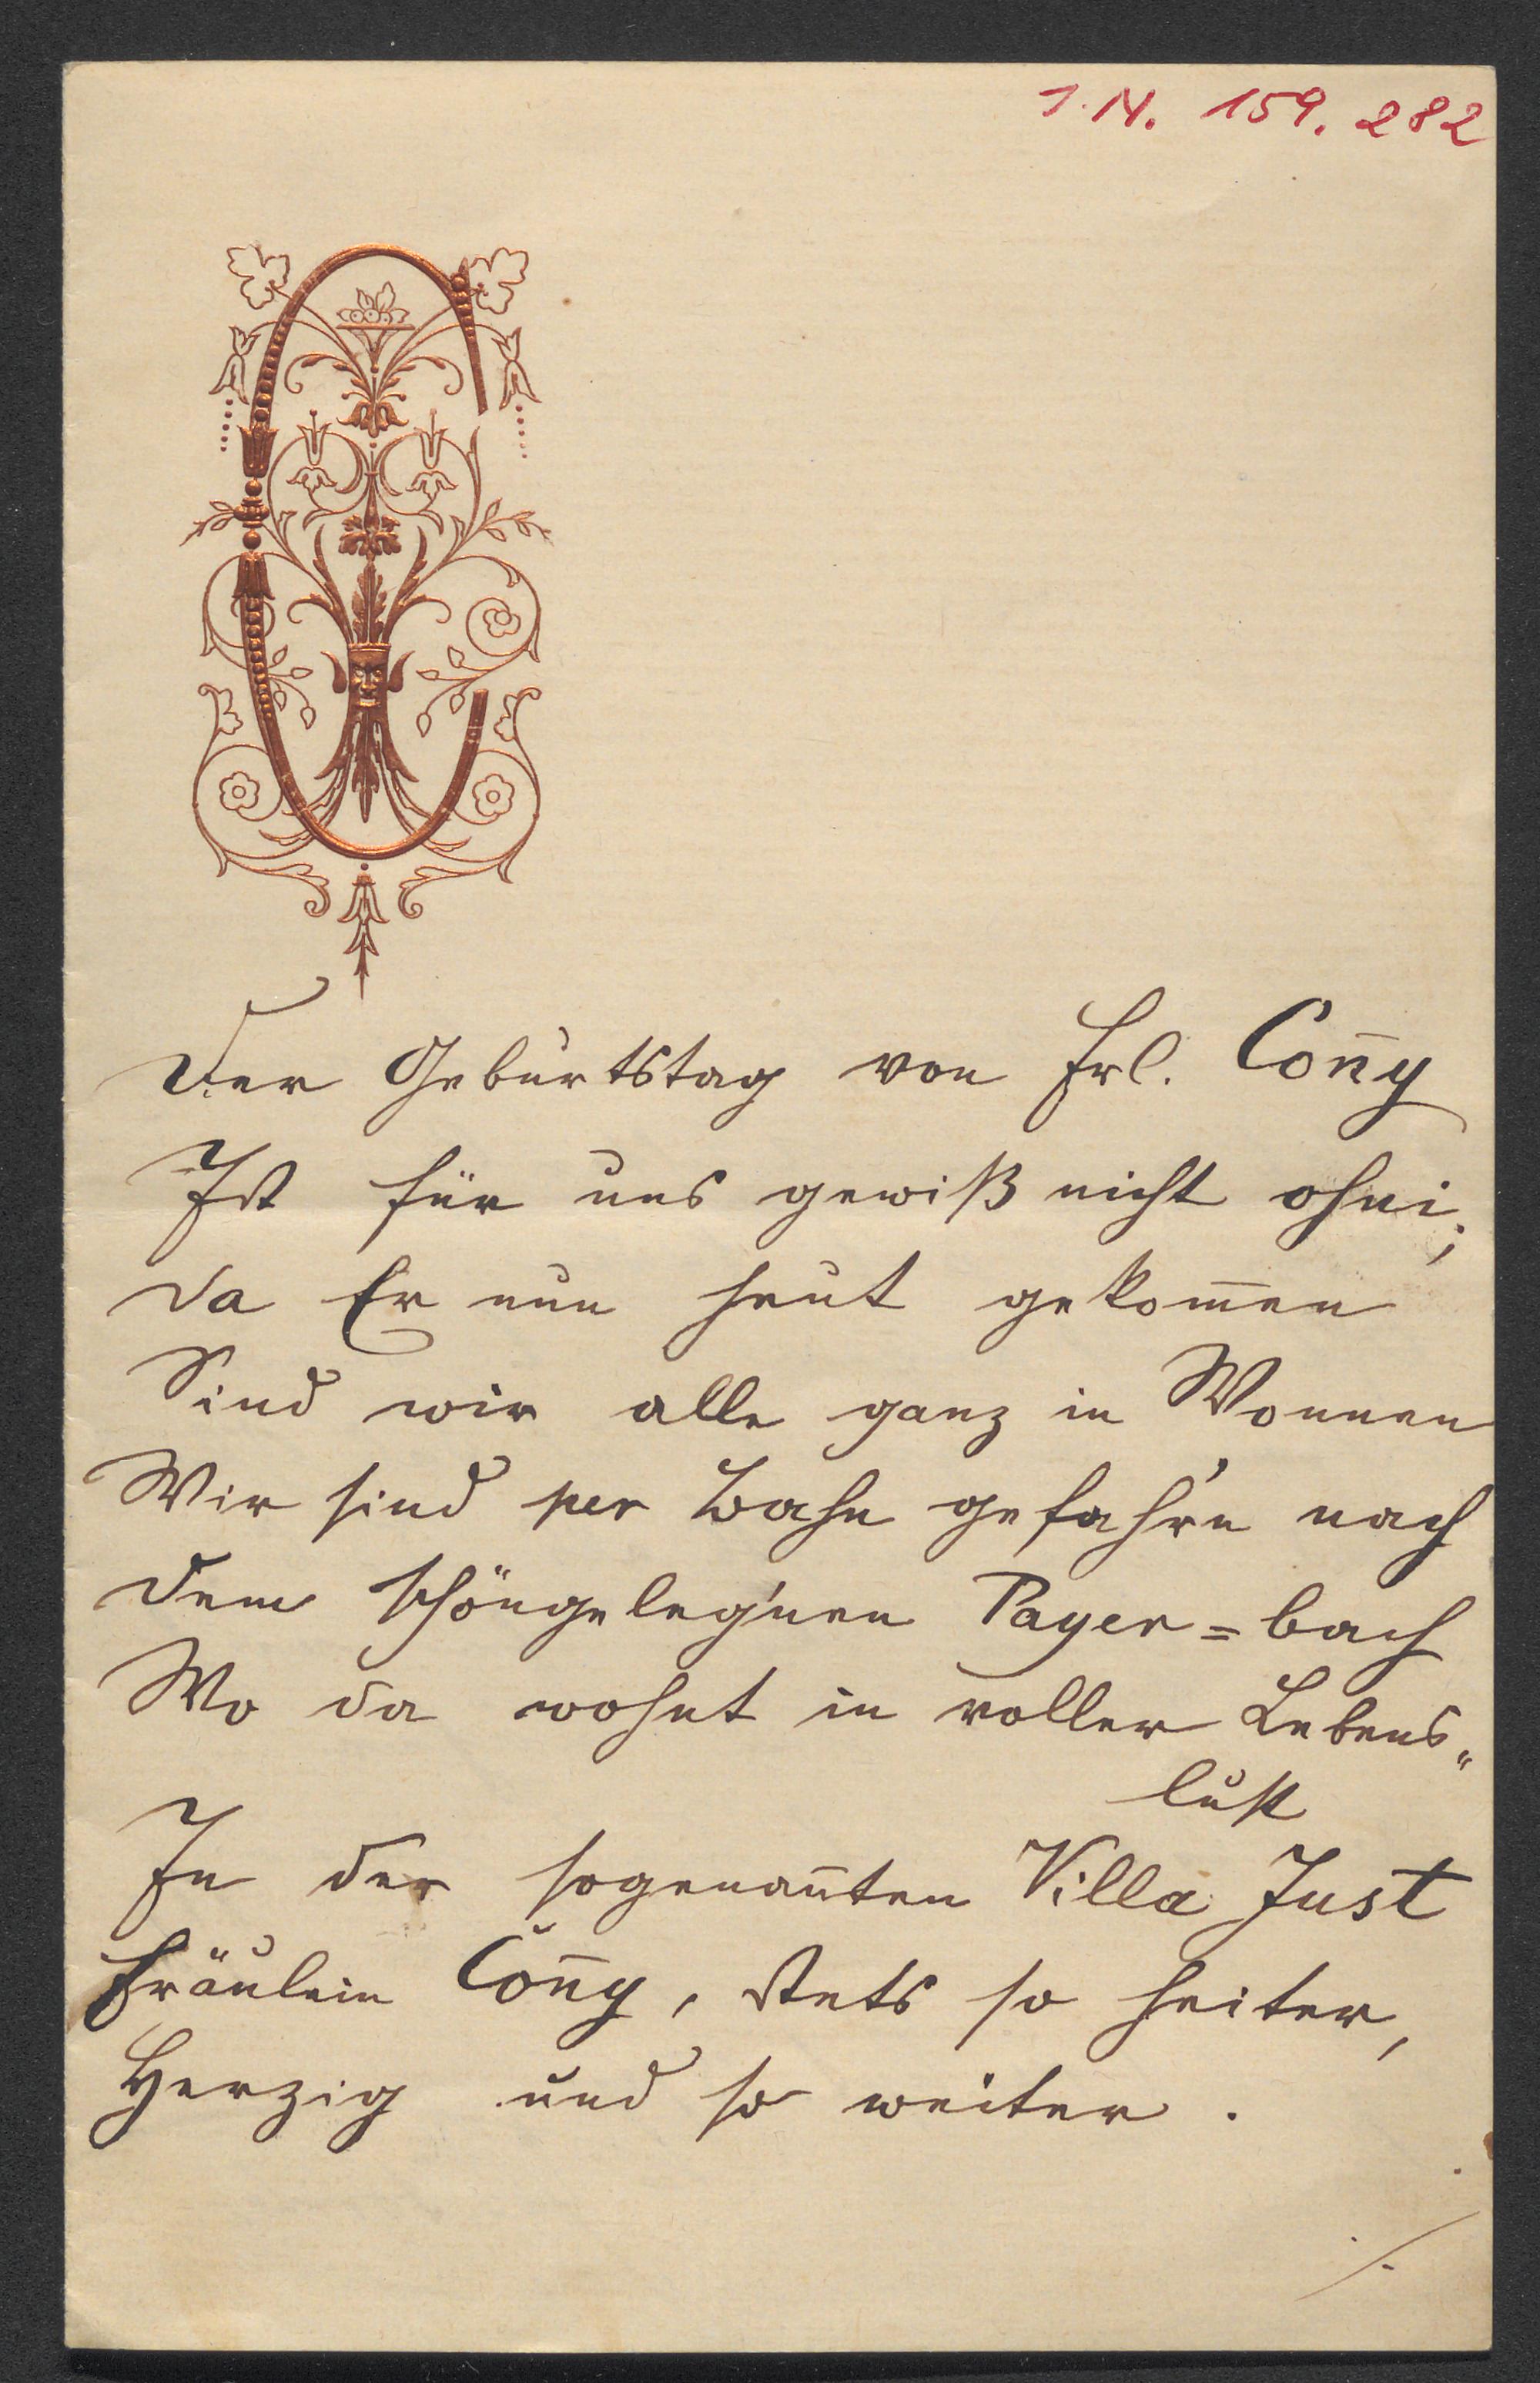 I. N. 159.282
Der Geburtstag von Frl. Con̄y
Ist für uns gewiß nicht ohni;
Da Er nun heut gekom̄en
Sind wir alle ganz in Wonnen
Wir sind per Bahn gefahr'n nach
dem schöngeleg'nen Payer=bach
Wo da wohnt in voller Lebens„
lust
In der sogenan̄ten Villa Just
Fräulein Con̄y, stets so heiter,
Herzig und so weiter.
./.